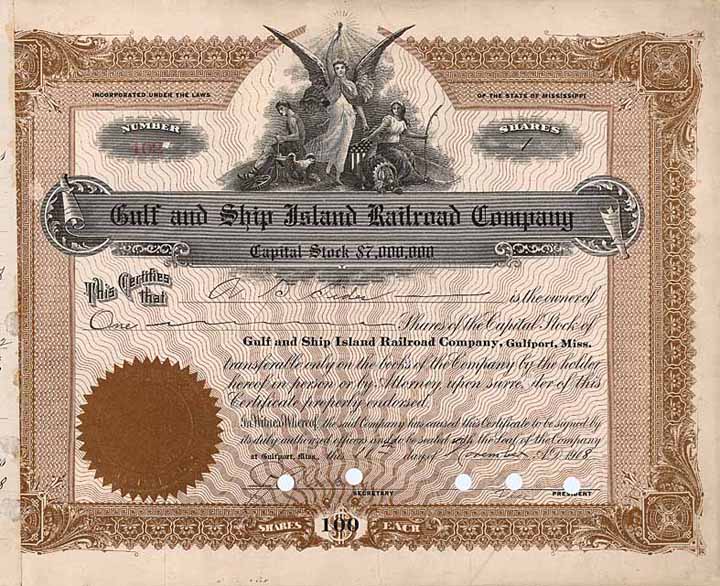 INCORPORATED UNDER THE LAWS
OF THE STATE OF MISSISSIPPI
NUMBER
SHARES
1
Gulf and Ship Island Railroad Company
Capital Stock $7,000,000
This Certifies that is the owner of
One Shares of the Capital Stock of
Gulf and Ship Island Railroad Company, Gulfport, Miss.
transferable only on the books of the Company by the holder
hereof in person or by Attorney, upon surre der of this
Certificate properly endorsed.
In Witness Whereof, the said Company has caused this Certificate to be signed by
its duly authorized officers and to be sealed with the Seal of the Company
at Gulfport, Miss., this day of November A.D. 1908
SECRETARY
PRESIDENT
SHARES 100 EACH